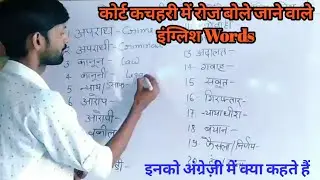 कोर्ट कचहरी में रोज बोले जाने वाले
इंग्लिश Words
1 अपराध - Crime
2 अपराधी - Criminal
3 कानून - Law
4 कानूनी -
5 न्याय/
6 आरोप -
आरोपी -
वकील
13 अदालत -
14 गवाह -
15 सबूत -
16 गिरफ्तार -
17 न्यायाधीश -
18 बयान -
19 फैसला/निर्णय
इनको अंग्रेज़ी में क्या कहते हैं